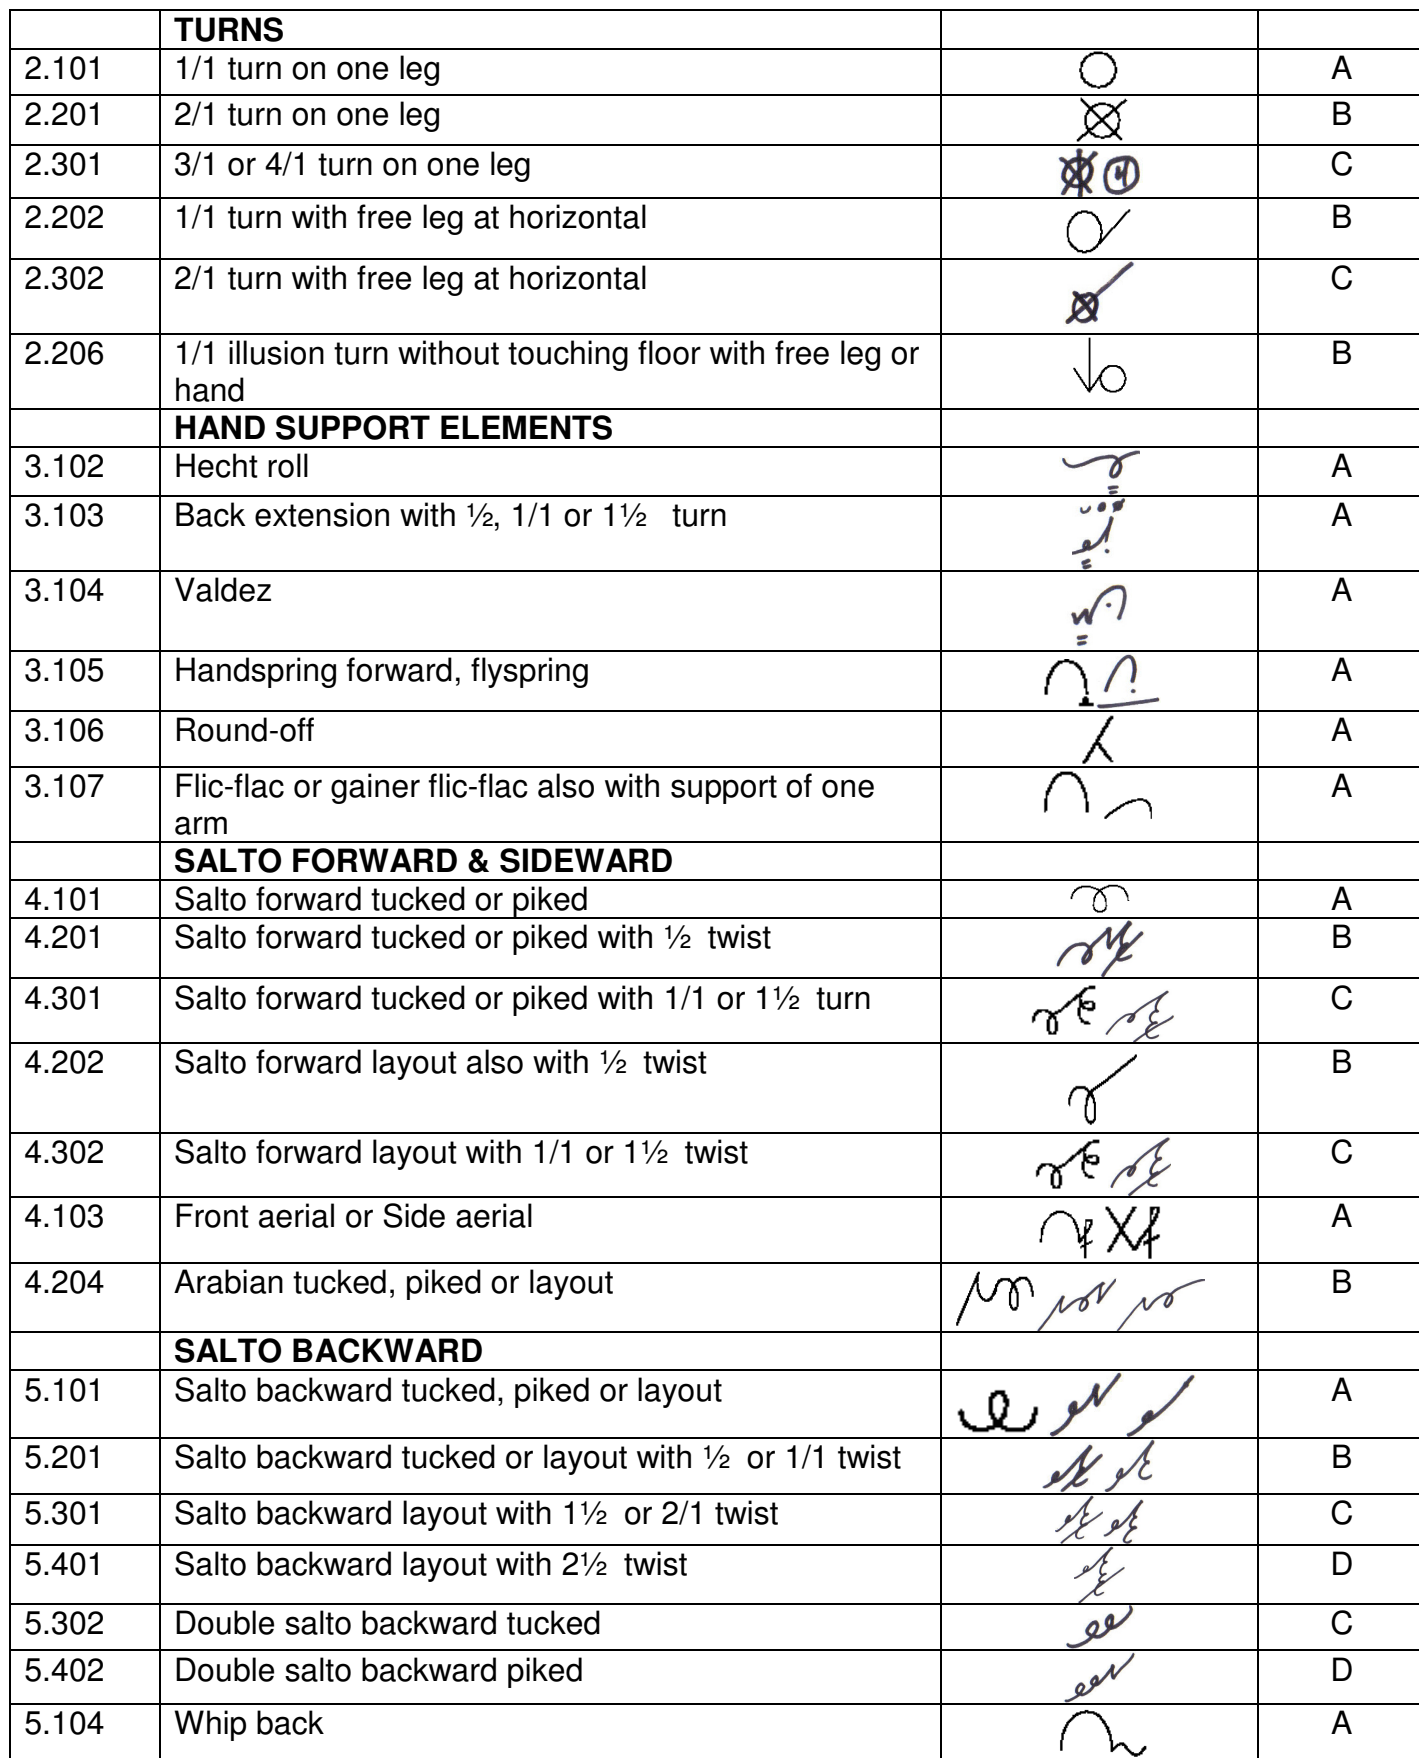 TURNS
2.101 1/1 turn on one leg A
2.201 2/1 turn on one leg B
2.301 3/1 or 4/1 turn on one leg 4 C
2.202 1/1 turn with free leg at horizontal B
2.302 2/1 turn with free leg at horizontal C
2.206 1/1 illusion turn without touching floor with free leg or B
hand
HAND SUPPORT ELEMENTS
3.102 Hecht roll A
3.103 Back extension with ½, 1/1 or 1½ turn A
3.104 Valdez A
3.105 Handspring forward, flyspring A
3.106 Round-off A
3.107 Flic-flac or gainer flic-flac also with support of one A
arm
SALTO FORWARD & SIDEWARD
4.101 Salto forward tucked or piked A
4.201 Salto forward tucked or piked with ½ twist B
4.301 Salto forward tucked or piked with 1/1 or 1½ turn C
4.202 Salto forward layout also with ½ twist B
4.302 Salto forward layout with 1/1 or 1½ twist C
4.103 Front aerial or Side aerial A
4.204 Arabian tucked, piked or layout B
SALTO BACKWARD
5.101 Salto backward tucked, piked or layout A
5.201 Salto backward tucked or layout with ½ or 1/1 twist B
5.301 Salto backward layout with 1½ or 2/1 twist C
5.401 Salto backward layout with 2½ twist D
5.302 Double salto backward tucked C
5.402 Double salto backward piked D
5.104 Whip back A